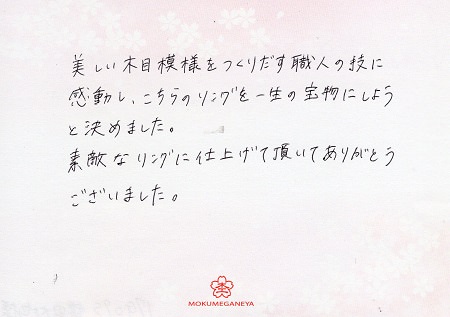 美しい木目模様をつくりだす職人の技に
感動し、こちらのリングを一生の宝物にしよう
と決めました。
素敵なリングに仕上げて頂いてありがとう
ございました。
MOKUMEGANEYA